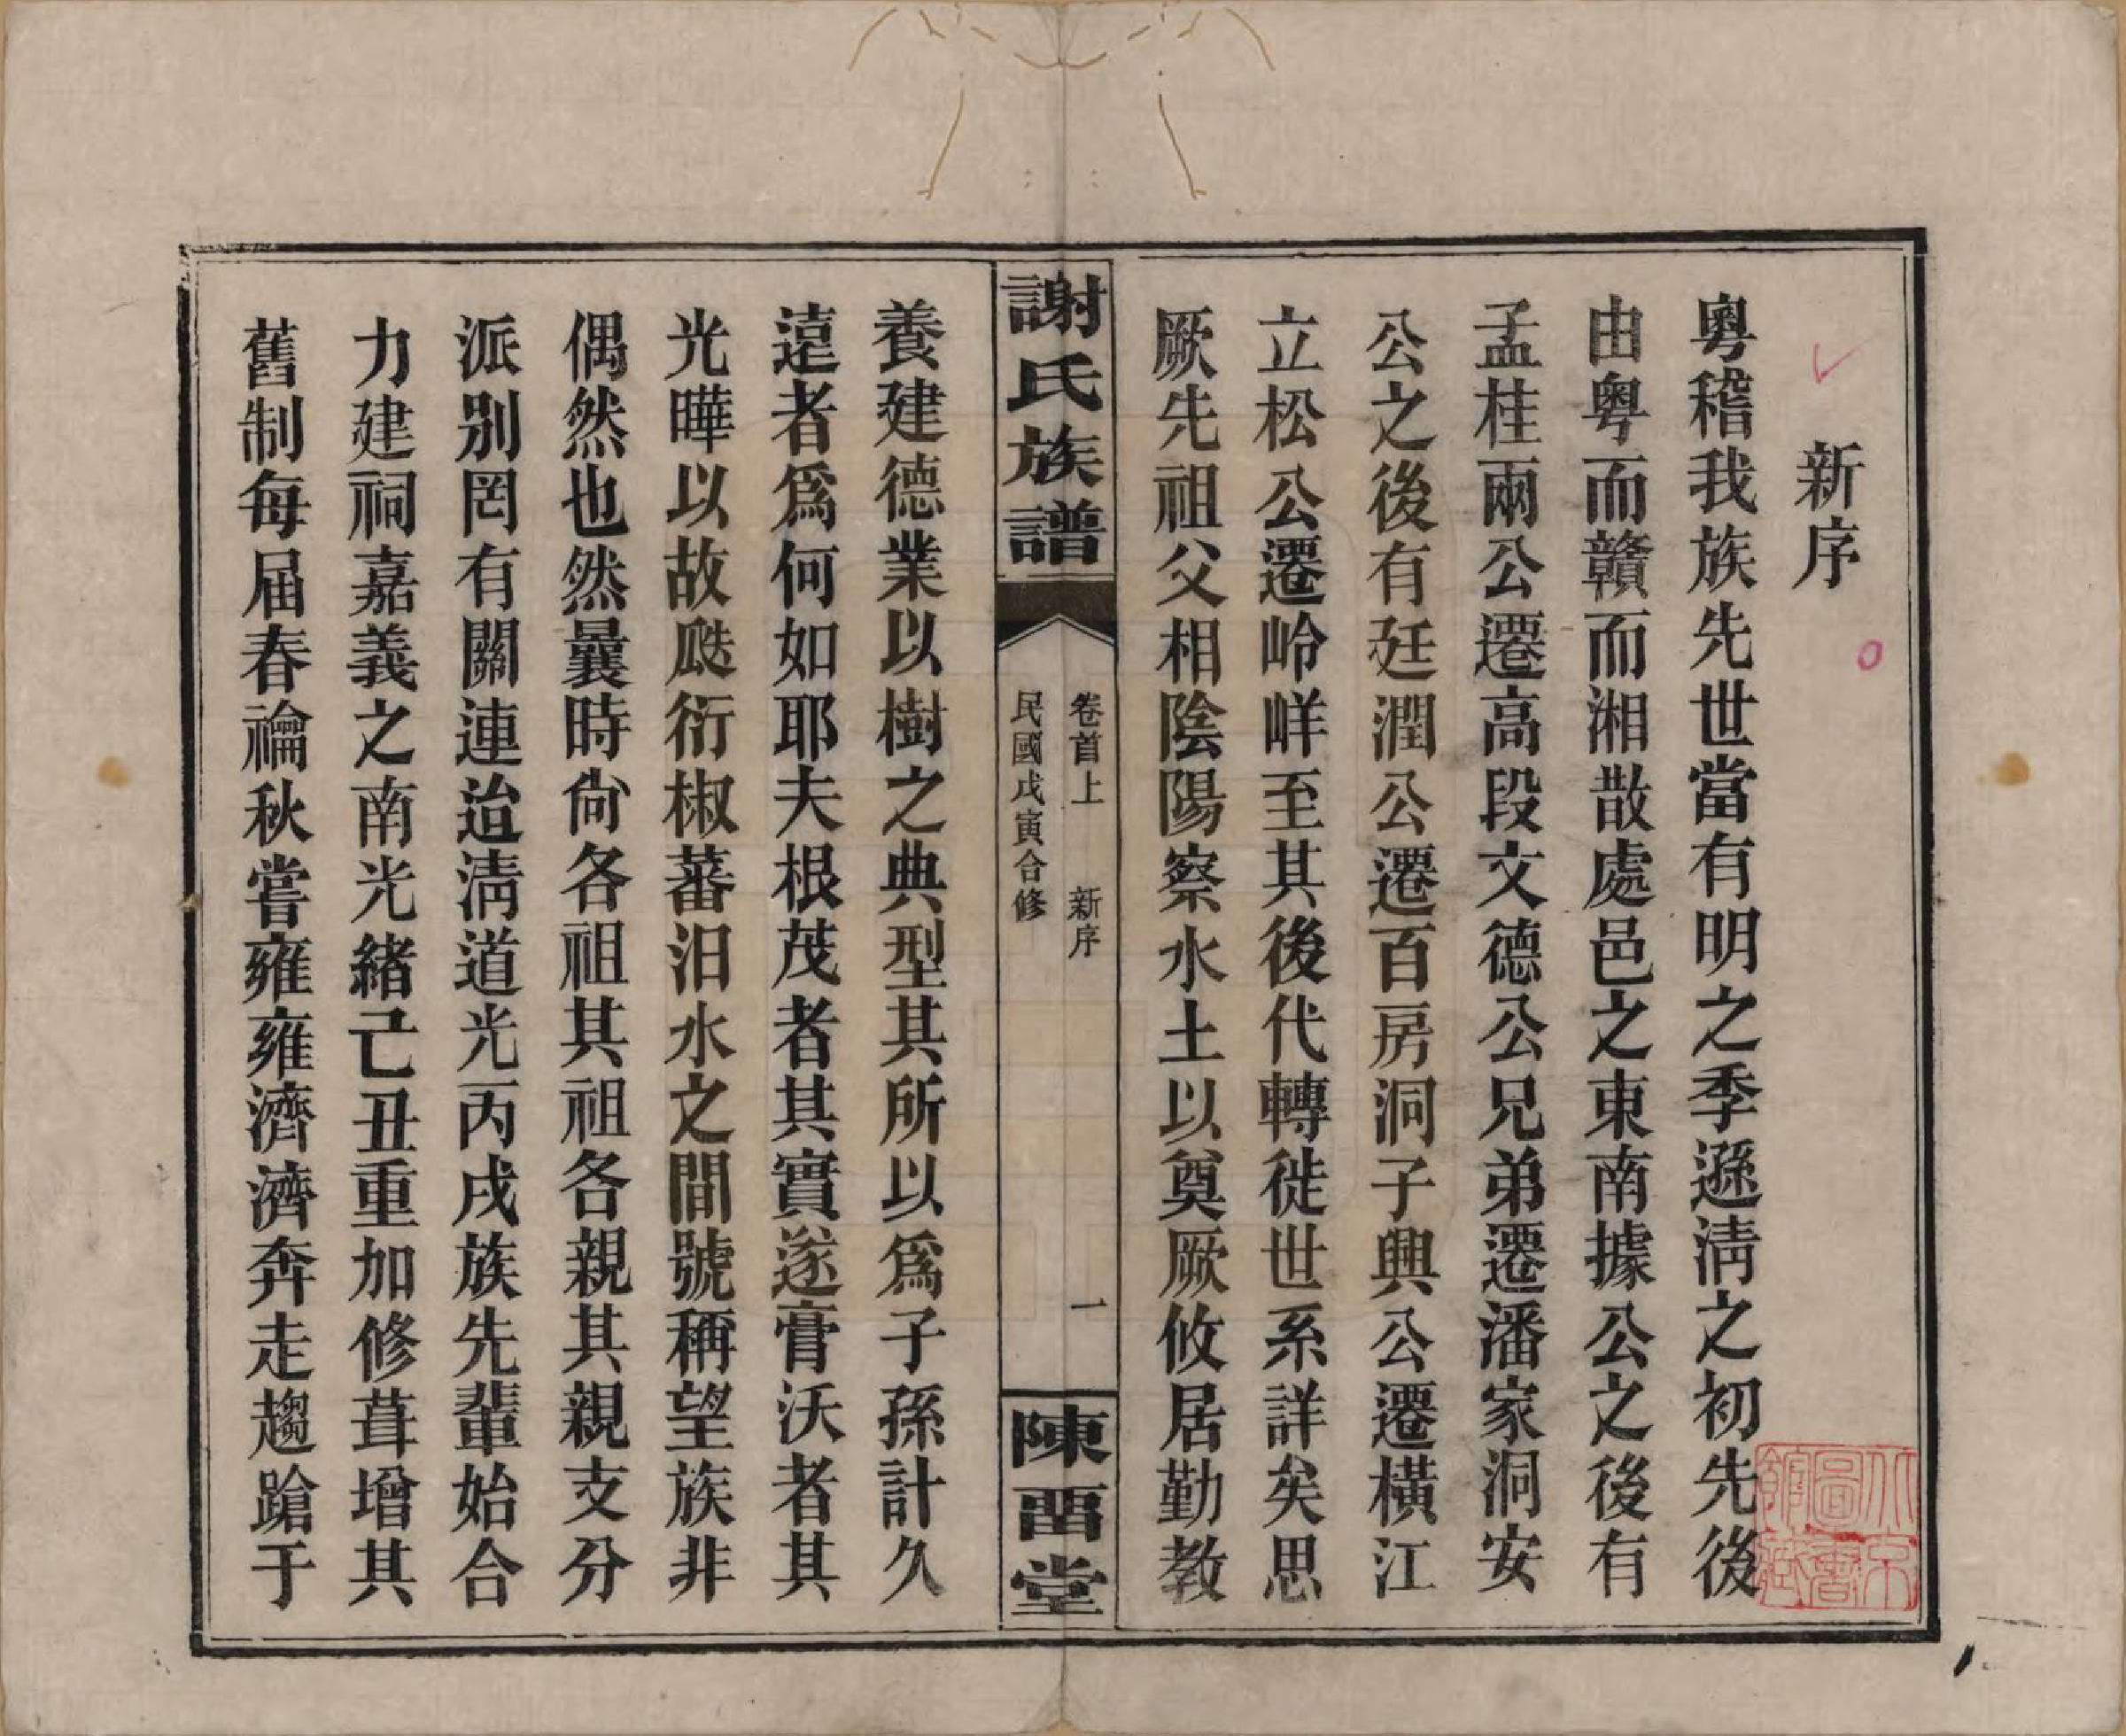 新序
粵稽我族先世當有明之季遜淸之初先後
由粤而贛而湘散處邑之東南據公之後有
孟桂兩公遷高段文德公兄弟遷潘家洞安
公之後有廷潤公遷百房洞子興公遷橫江
立松公遷岭峰至其後代轉徙世系詳矣思
厥先祖父相陰陽察水土以奠厥攸居勤教
謝氏族譜
卷首上 新序 一
民國戊寅合修
陳畱堂
養建德業以樹之典型其所以爲子孫計久
遠者爲何如耶夫根茂者其實遂膏沃者其
光曄以故瓞衍椒蕃汨水之間號稱望族非
偶然也然曩時尙各祖其祖各親其親支分
派別罔有關連迨淸道光丙戌族先輩始合
力建祠嘉義之南光緒己丑重加修葺增其
舊制每届春禴秋嘗雍雍濟濟奔走趨蹌于
北京圖書館藏